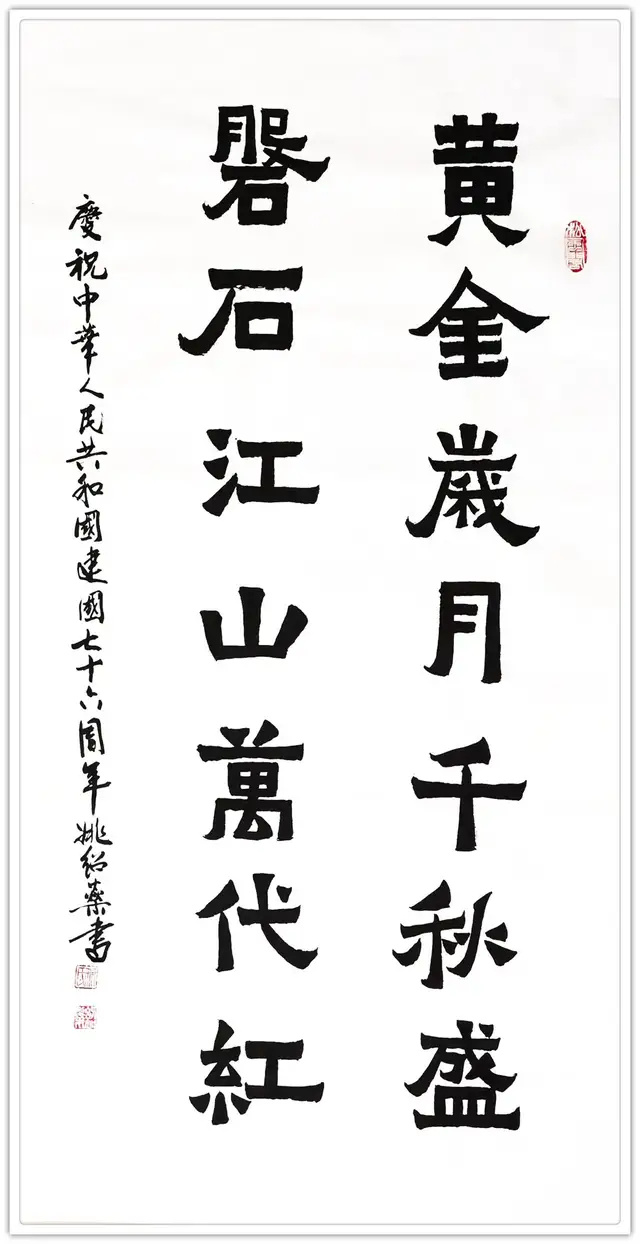 黄金歲月千秋盛
磐石江山萬代紅
慶祝中華人民共和國建國七十六周年 姚紹燊書